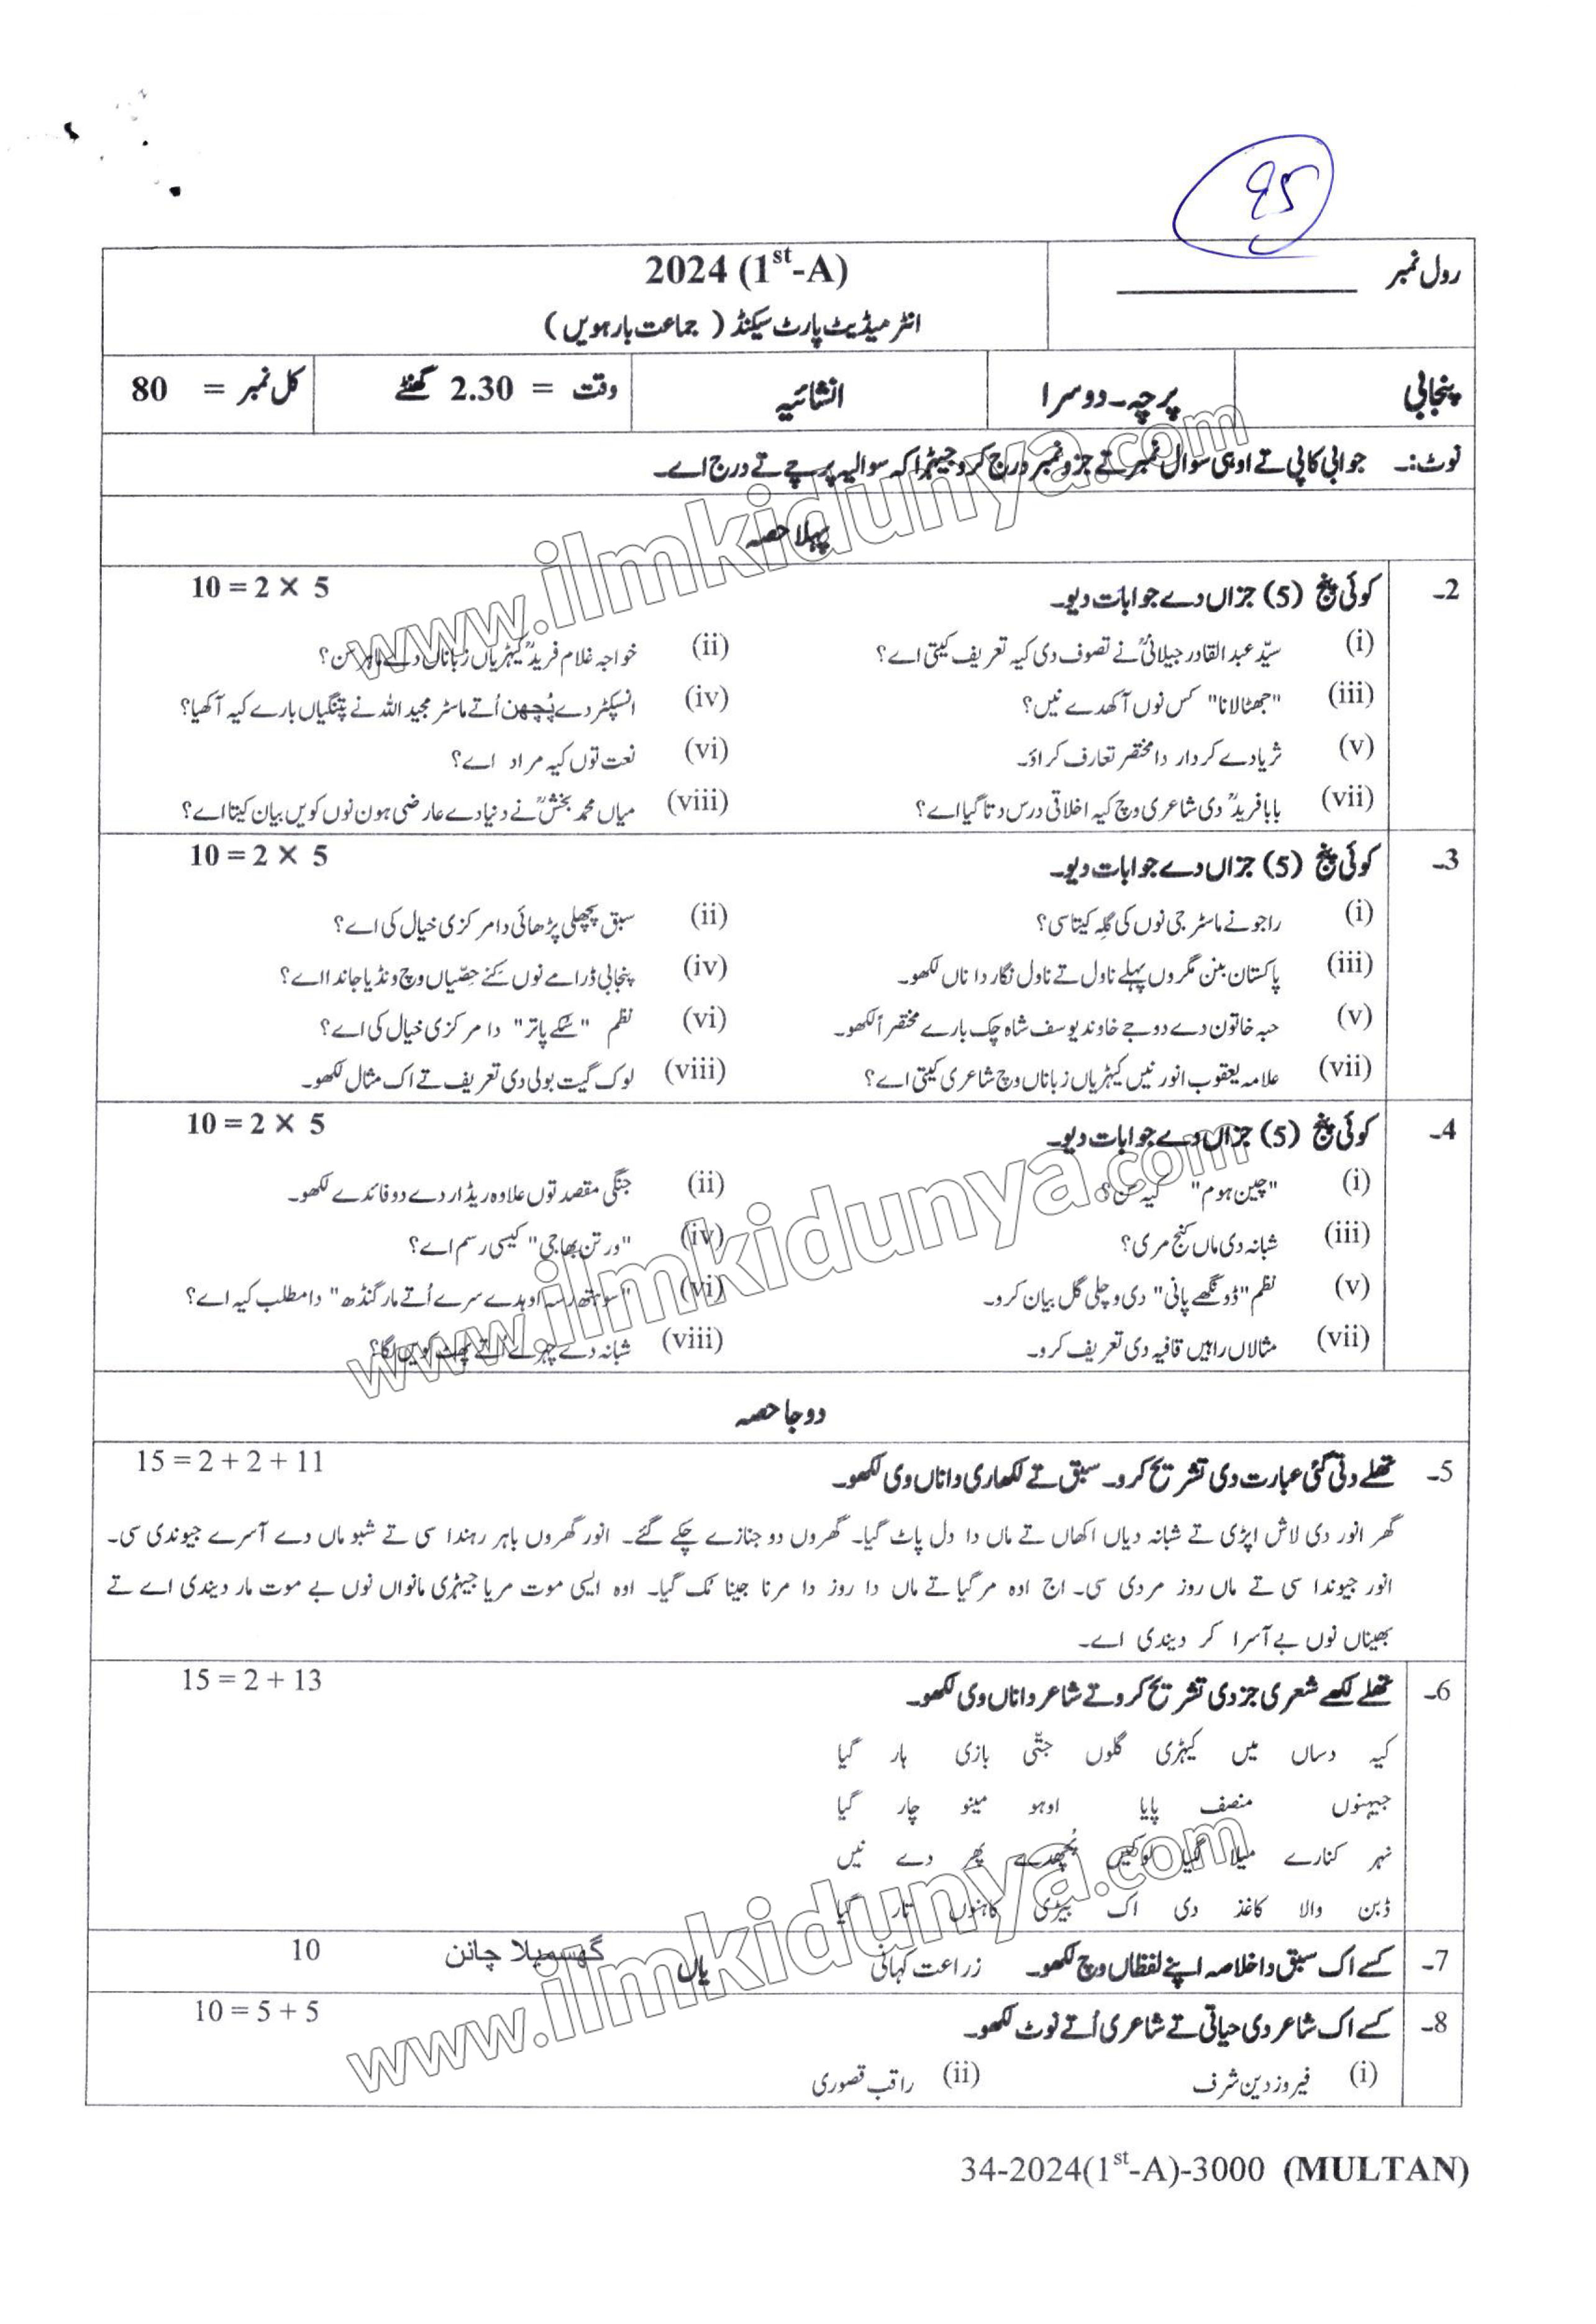 95
2024 (1st-A)
رول نمبر ____________
انٹر میڈیٹ پارٹ سیکنڈ ( جماعت بارہویں )
پنجابی پرچہ۔دوسرا انشائیہ وقت = 2.30 گھنٹے کل نمبر = 80
نوٹ:۔ جوابی کاپی تے اوہی سوال نمبر تے جزو نمبر درج کرو جیہڑا کہ سوالیہ پرچے تے درج اے۔
پہلا حصہ
2۔ کوئی پنج (5) جزاں دے جوابات دیو۔ 10 = 2 × 5
(i) سیّد عبدالقادر جیلانیؒ نے تصوف دی کیہ تعریف کیتی اے؟ (ii) خواجہ غلام فریدؒ کیہڑیاں زباناں دے ماہر سن؟
(iii) "جھٹالانا" کس نوں آکھدے نیں؟ (iv) انسپکٹر دے پُچھن اُتے ماسٹر مجید اللہ نے پتنگیاں بارے کیہ آکھیا؟
(v) ثریا دے کردار دا مختصر تعارف کراؤ۔ (vi) نعت توں کیہ مراد اے؟
(vii) بابا فریدؒ دی شاعری وچ کیہ اخلاقی درس دتا گیا اے؟ (viii) میاں محمد بخشؒ نے دنیا دے عارضی ہون نوں کویں بیان کیتا اے؟
3۔ کوئی پنج (5) جزاں دے جوابات دیو۔ 10 = 2 × 5
(i) راجو نے ماسٹر جی نوں کی گلہ کیتا سی؟ (ii) سبق پچھلی پڑھائی دا مرکزی خیال کی اے؟
(iii) پاکستان بنن مگروں پہلے ناول تے ناول نگار دا ناں لکھو۔ (iv) پنجابی ڈرامے نوں کنے حصّیاں وچ ونڈیا جاندا اے؟
(v) حبہ خاتون دے دوجے خاوند یوسف شاہ چک بارے مختصراً لکھو۔ (vi) نظم "سُکے پاتر" دا مرکزی خیال کی اے؟
(vii) علامہ یعقوب انور نیں کیہڑیاں زباناں وچ شاعری کیتی اے؟ (viii) لوک گیت بولی دی تعریف تے اک مثال لکھو۔
4۔ کوئی پنج (5) جزاں دے جوابات دیو۔ 10 = 2 × 5
(i) "چین ہوم" کیہ سن؟ (ii) جنگی مقصد توں علاوہ ریڈار دے دو فائدے لکھو۔
(iii) شبانہ دی ماں کنج مری؟ (iv) "ورتن بھاجی" کیسی رسم اے؟
(v) نظم "ڈونگھے پانی" دی وچلی گل بیان کرو۔ (vi) "سو ہتھ رسہ اوہدے سرے اُتے مار گنڈھ" دا مطلب کیہ اے؟
(vii) مثالاں راہیں قافیہ دی تعریف کرو۔ (viii) شبانہ دے چہرے اُتے پھٹ کویں لگا؟
دوجا حصہ
5۔ تھلے دتی گئی عبارت دی تشریح کرو۔ سبق تے لکھاری دا ناں وی لکھو۔ 15 = 2 + 2 + 11
گھر انور دی لاش اپڑی تے شبانہ دیاں اکھاں تے ماں دا دل پاٹ گیا۔ گھروں دو جنازے چکے گئے۔ انور گھروں باہر رہندا سی تے شبو ماں دے آسرے جیوندی سی۔
انور جیوندا سی تے ماں روز مردی سی۔ اج اوہ مر گیا تے ماں دا روز دا مرنا جینا مُک گیا۔ اوہ ایسی موت مریا جیہڑی مانواں نوں بے موت مار دیندی اے تے
بھیناں نوں بے آسرا کر دیندی اے۔
6۔ تھلے لکھے شعری جزدی تشریح کرو تے شاعر دا ناں وی لکھو۔ 15 = 2 + 13
کیہ دساں میں کیہڑی گلوں جتّی بازی ہار گیا
جیہنوں منصف پایا اوہو مینو چار گیا
نہر کنارے میلا لگیا لوکیں پُچھدے پھر دے نیں
ڈبن والا کاغذ دی اک بیڑی کاہنوں تار گیا
7۔ کسے اک سبق دا خلاصہ اپنے لفظاں وچ لکھو۔ زراعت کہانی یاں گھسمیلا چانن 10
8۔ کسے اک شاعر دی حیاتی تے شاعری اُتے نوٹ لکھو۔ 10 = 5 + 5
(i) فیروز دین شرف (ii) راقب قصوری
34-2024(1st-A)-3000 (MULTAN)
www.ilmkidunya.com
www.ilmkidunya.com
www.ilmkidunya.com